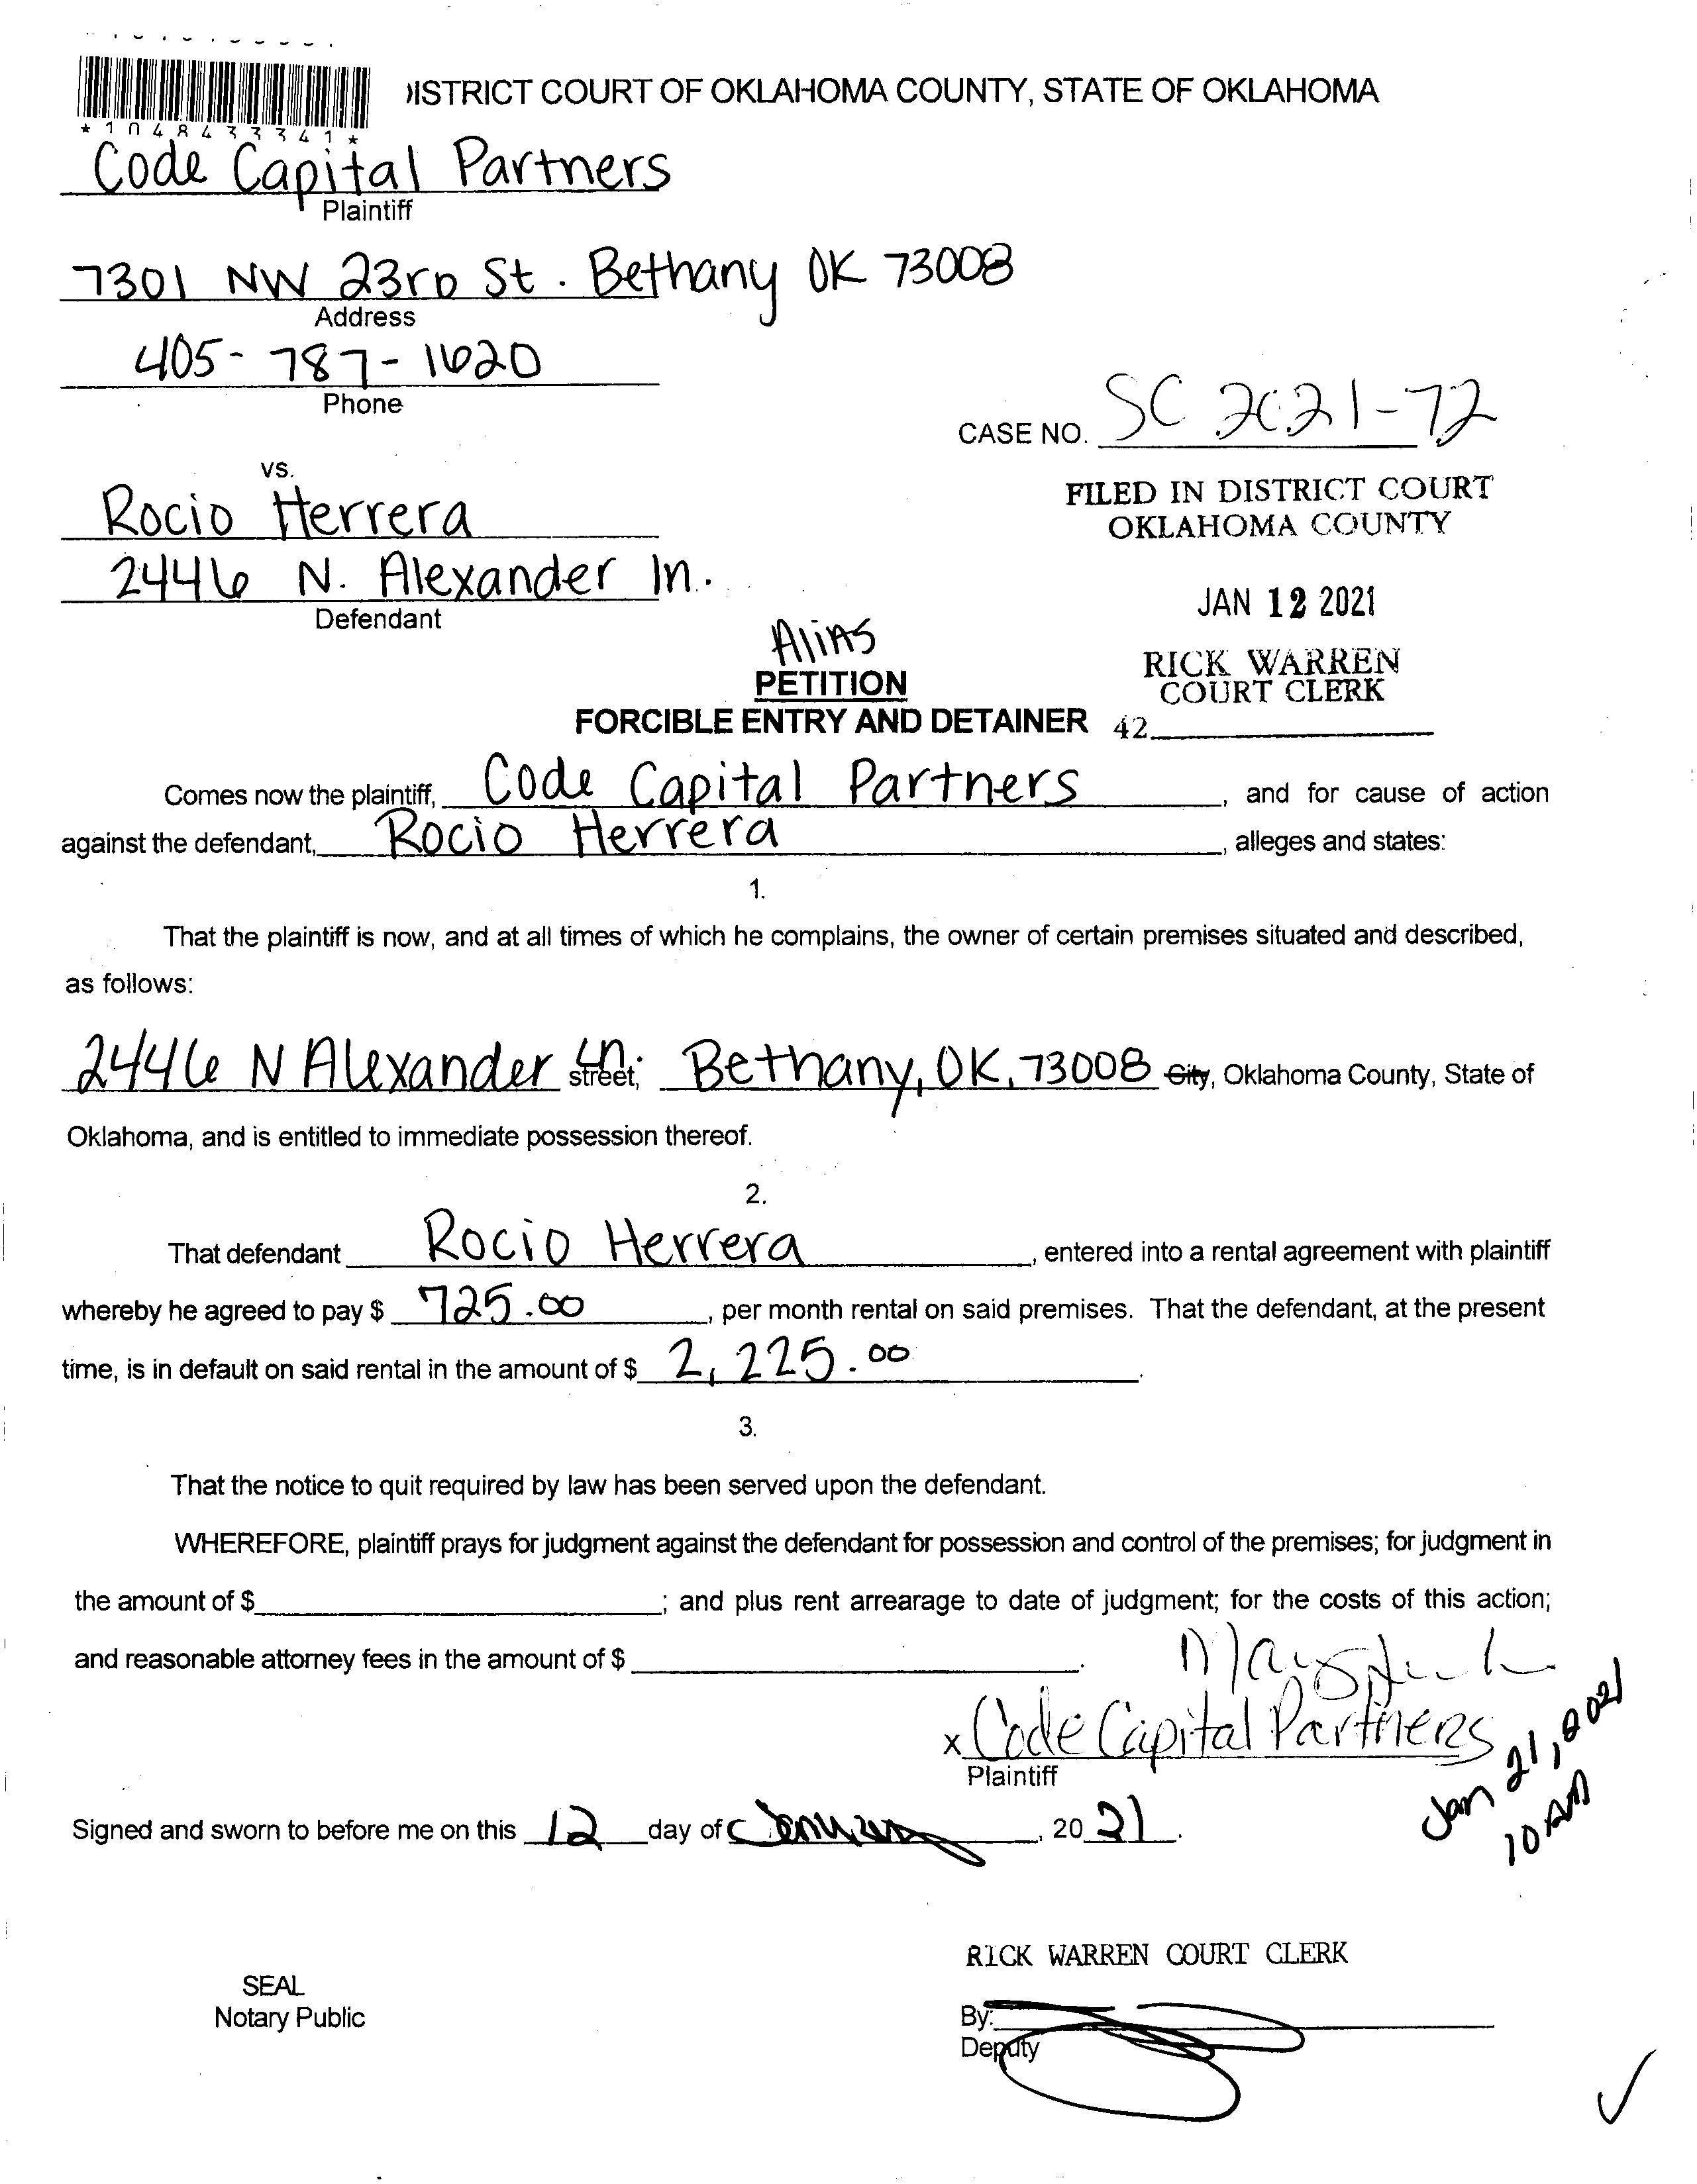 DISTRICT COURT OF OKLAHOMA COUNTY, STATE OF OKLAHOMA
*1048433341*
Code Capital Partners
Plaintiff
7301 NW 23rd St. Bethany OK 73008
Address
405-787-1620
Phone
CASE NO. SC 2021-72
vs.
Rocio Herrera
2446 N. Alexander ln.
Defendant
FILED IN DISTRICT COURT
OKLAHOMA COUNTY
JAN 12 2021
RICK WARREN
COURT CLERK
42
Alias
PETITION
FORCIBLE ENTRY AND DETAINER
Comes now the plaintiff, Code Capital Partners, and for cause of action
against the defendant, Rocio Herrera, alleges and states:
1.
That the plaintiff is now, and at all times of which he complains, the owner of certain premises situated and described,
as follows:
2446 N Alexander Ln street; Bethany, OK, 73008 City, Oklahoma County, State of
Oklahoma, and is entitled to immediate possession thereof.
2.
That defendant Rocio Herrera, entered into a rental agreement with plaintiff
whereby he agreed to pay $ 725.00, per month rental on said premises. That the defendant, at the present
time, is in default on said rental in the amount of $ 2,225.00.
3.
That the notice to quit required by law has been served upon the defendant.
WHEREFORE, plaintiff prays for judgment against the defendant for possession and control of the premises; for judgment in
the amount of $; and plus rent arrearage to date of judgment; for the costs of this action;
and reasonable attorney fees in the amount of $.
x Code Capital Partners
Plaintiff
Jan 21, 2021
10 AM
Signed and sworn to before me on this 12 day of January, 2021.
RICK WARREN COURT CLERK
SEAL
Notary Public
By:
Deputy